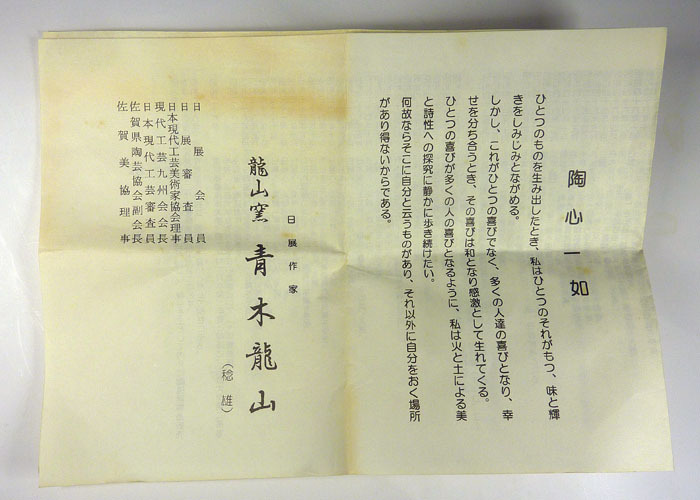 陶心一如
ひとつのものを生み出したとき、私はひとつのそれがもつ、味と輝
きをしみじみとながめる。
しかし、これがひとつの喜びでなく、多くの人達の喜びとなり、幸
せを分ち合うとき、その喜びは和となり感激として生れてくる。
ひとつの喜びが多くの人の喜びとなるように、私は火と土による美
と詩性への探究に静かに歩き続けたい。
何故ならそこに自分と云うものがあり、それ以外に自分をおく場所
があり得ないからである。
日展作家
龍山窯 青木龍山
（稔雄）
日展会員
日展審査員
日本現代工芸美術家協会理事
現代工芸九州会会長
日本現代工芸審査員
佐賀県陶芸協会副会長
佐賀美協理事